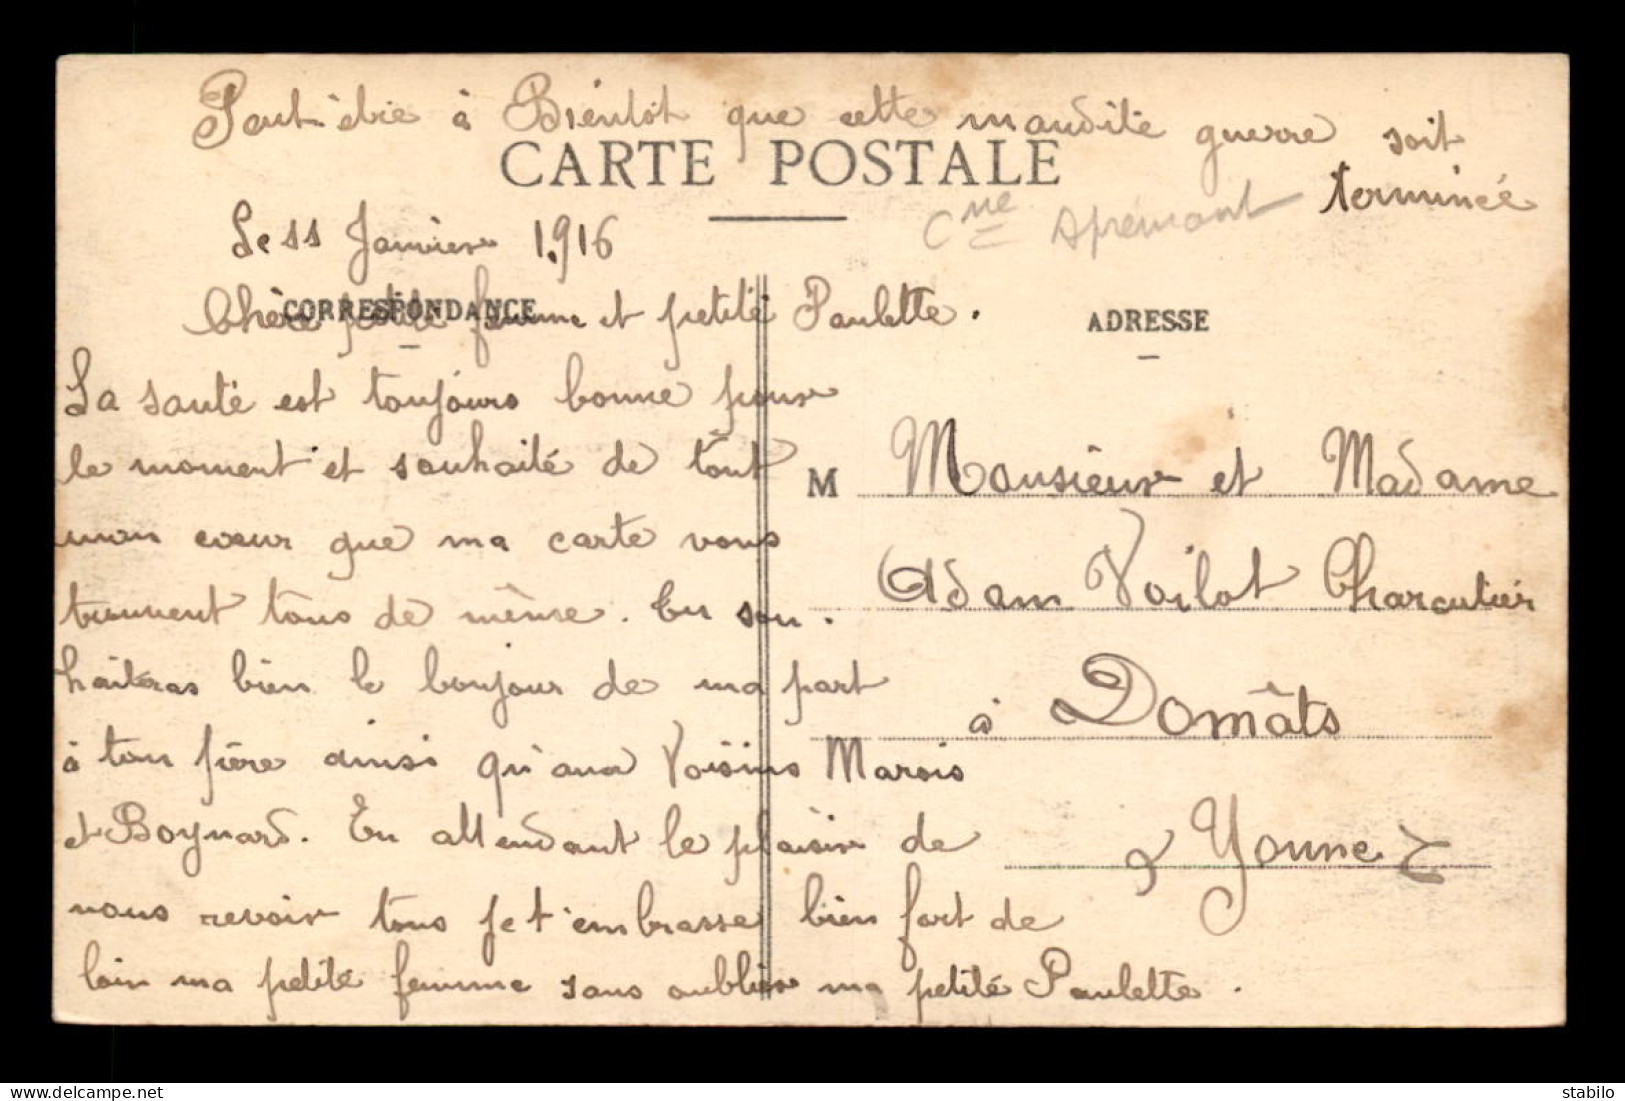 Peut-être à Bientôt que cette maudite guerre soit
terminée
CARTE POSTALE
Cne Aprémont
Le 11 Janvier 1.916
CORRESPONDANCE
ADRESSE
Chère petite femme et petité Paulette.
La santé est toujours bonne pour
le moment et souhaité de tout
mon coeur que ma carte vous
trouvent tous de même. Tu sou.
haiteras bien le bonjour de ma part
à ton père ainsi qu'aux Voisins Marois
et Boynard. En attendant le plaisir de
vous revoir tous je t'embrasse bien fort de
loin ma petité femme sans oublier ma petité Paulette.
M Monsieur et Madame
Adam Voilot Charcutier
à Domâts
Yonne
stabilo